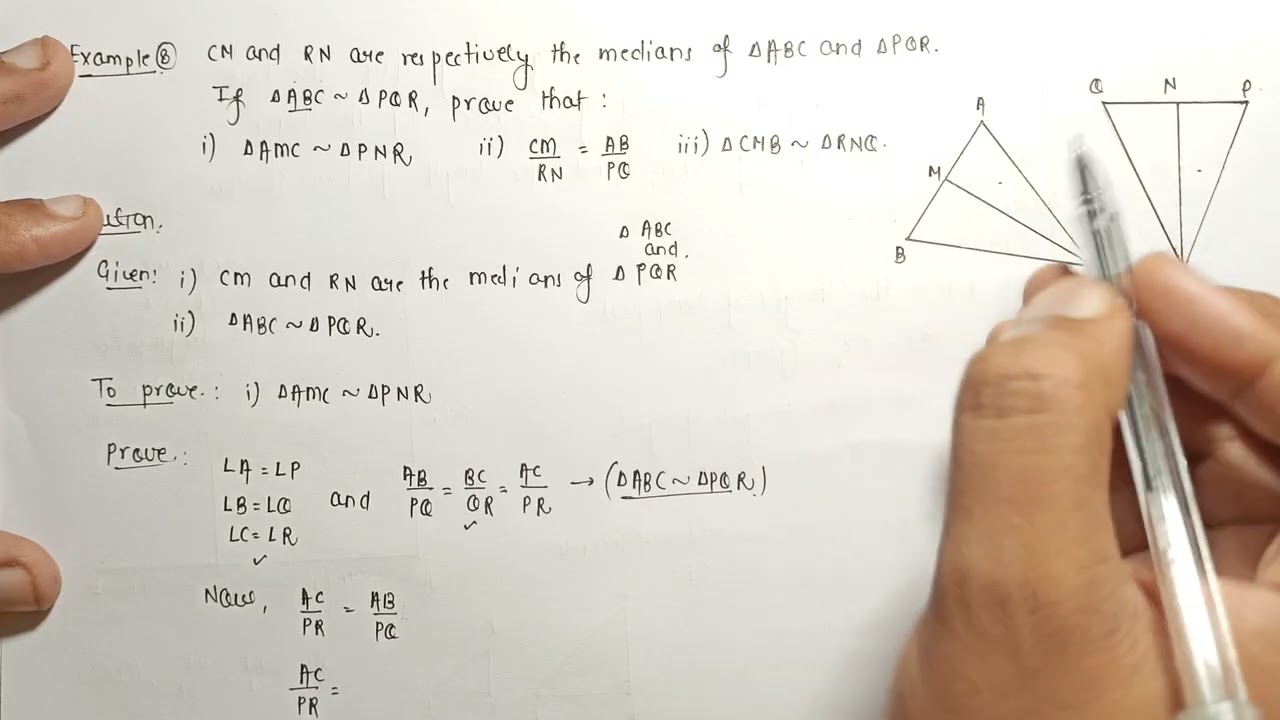 Example ⑧ CM and RN are respectively the medians of △ABC and △PQR.
If △ABC ~ △PQR, prove that :
i) △AMC ~ △PNR ii) CM/RN = AB/PQ iii) △CMB ~ △RNQ.
ution.
Given: i) CM and RN are the medians of △ABC and, △PQR
ii) △ABC ~ △PQR.
To prove.: i) △AMC ~ △PNR
Prove.:
∠A = ∠P
∠B = ∠Q and AB/PQ = BC/QR = AC/PR → (△ABC ~ △PQR.)
∠C = ∠R
Now, AC/PR = AB/PQ
AC/PR =
A
M
B
Q N P